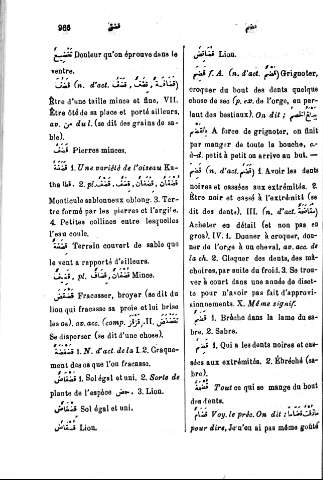 986
قضع
قضم
قُضَاعٌ Douleur qu'on éprouve dans le
ventre.
(n. d'act.
Être d'une taille mince et fine. VII.
Être ôté de sa place et porté ailleurs,
av. من du l. (se dit des grains de sa-
ble).
Pierres minces.
1. Une variété de l'oiseau Ka-
tha قطا. 2. pl.
Monticule sablonneux oblong. 3. Ter-
tre formé par les pierres et l'argile.
4. Petites collines entre lesquelles
l'eau coule.
Terrain couvert de sable que
le vent a rapporté d'ailleurs.
pl. Mince.
Fracasser, broyer (se dit du
lion qui fracasse sa proie et lui brise
les os). av. acc. (comp. II.
Se disperser (se dit d'une chose).
1. N. d'act. de la I. 2. Craque-
ment des os que l'on fracasse.
1. Sol égal et uni. 2. Sorte de
plante de l'espèce حمض. 3. Lion.
Sol égal et uni.
Lion.
Lion.
f. A. (n. d'act. قَضْم) Grignoter,
croquer du bout des dents quelque
chose de sec (p. ex. de l'orge, en par-
lant des bestiaux). On dit :
A force de grignoter, on finit
par manger de toute la bouche, c.-
à-d. petit à petit on arrive au but. —
(n. d'act. 1. Avoir les dents
noires et cassées aux extrémités. 2.
Être noir et cassé à l'extrémité (se
dit des dents). III. (n. d'act.
Acheter en détail (et non pas en
gros). IV. 1. Donner à croquer, don-
ner de l'orge à un cheval, av. acc. de
la ch. 2. Claquer des dents, des mâ-
choires, par suite du froid. 3. Se trou-
ver à court dans une année de diset-
te pour n'avoir pas fait d'approvi-
sionnements. X. Même signif.
1. Brèche dans la lame du sa-
bre. 2. Sabre.
1. Qui a les dents noires et cas-
sées aux extrémités. 2. Ébréché (sa-
bre).
Tout ce qui se mange du bout
des dents.
Voy. le préc. On dit :
pour dire, Je n'en ai pas même goûté